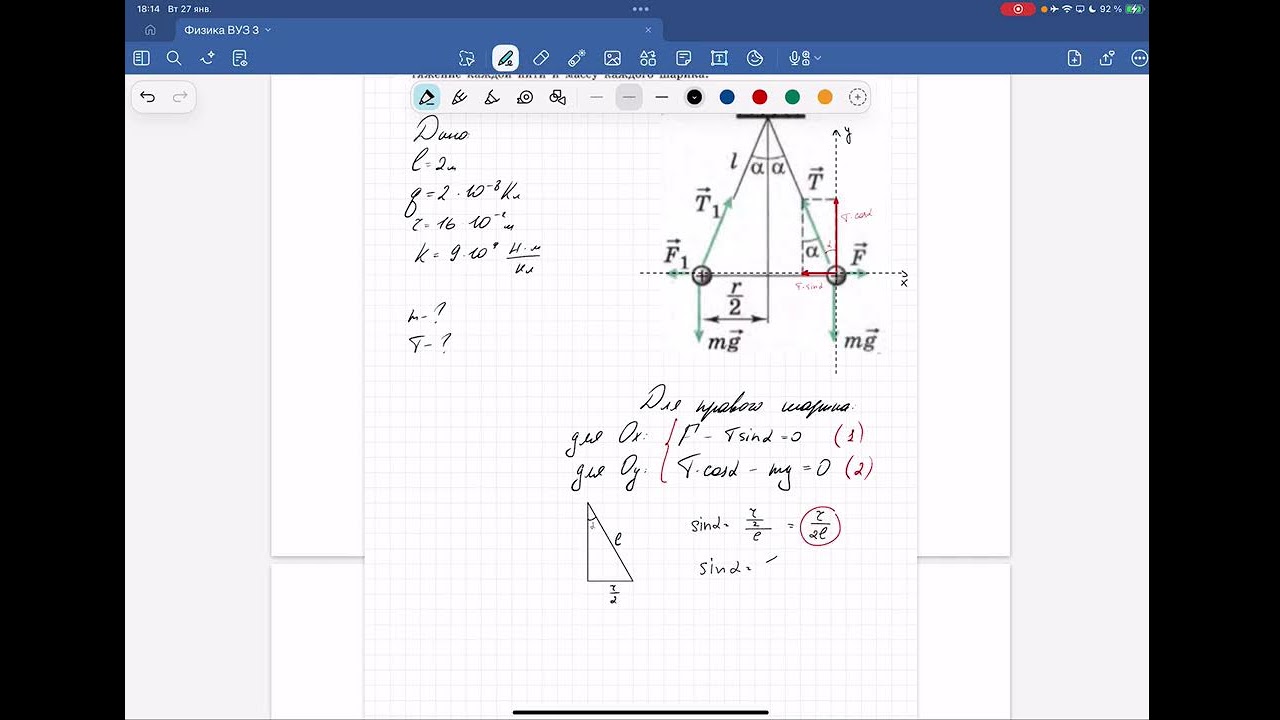 18:14 Вт 27 янв.
92 %
Физика ВУЗ 3
тяжение каждой нити и массу каждого шарика.
Дано
l = 2м
q = 2 · 10⁻⁸ Кл
r = 16 · 10⁻² м
k = 9·10⁹ Н·м/Кл
m - ?
T - ?
y
l α α T⃗
T⃗₁
T·cosα
F⃗₁ α α F⃗
x
r/2 T·sinα
mg⃗ mg⃗
Для правого шарика:
для Ox: F - Tsinα = 0 (1)
для Oy: T·cosα - mg = 0 (2)
α l r/2
sinα = (r/2)/l = r/2l
sinα =